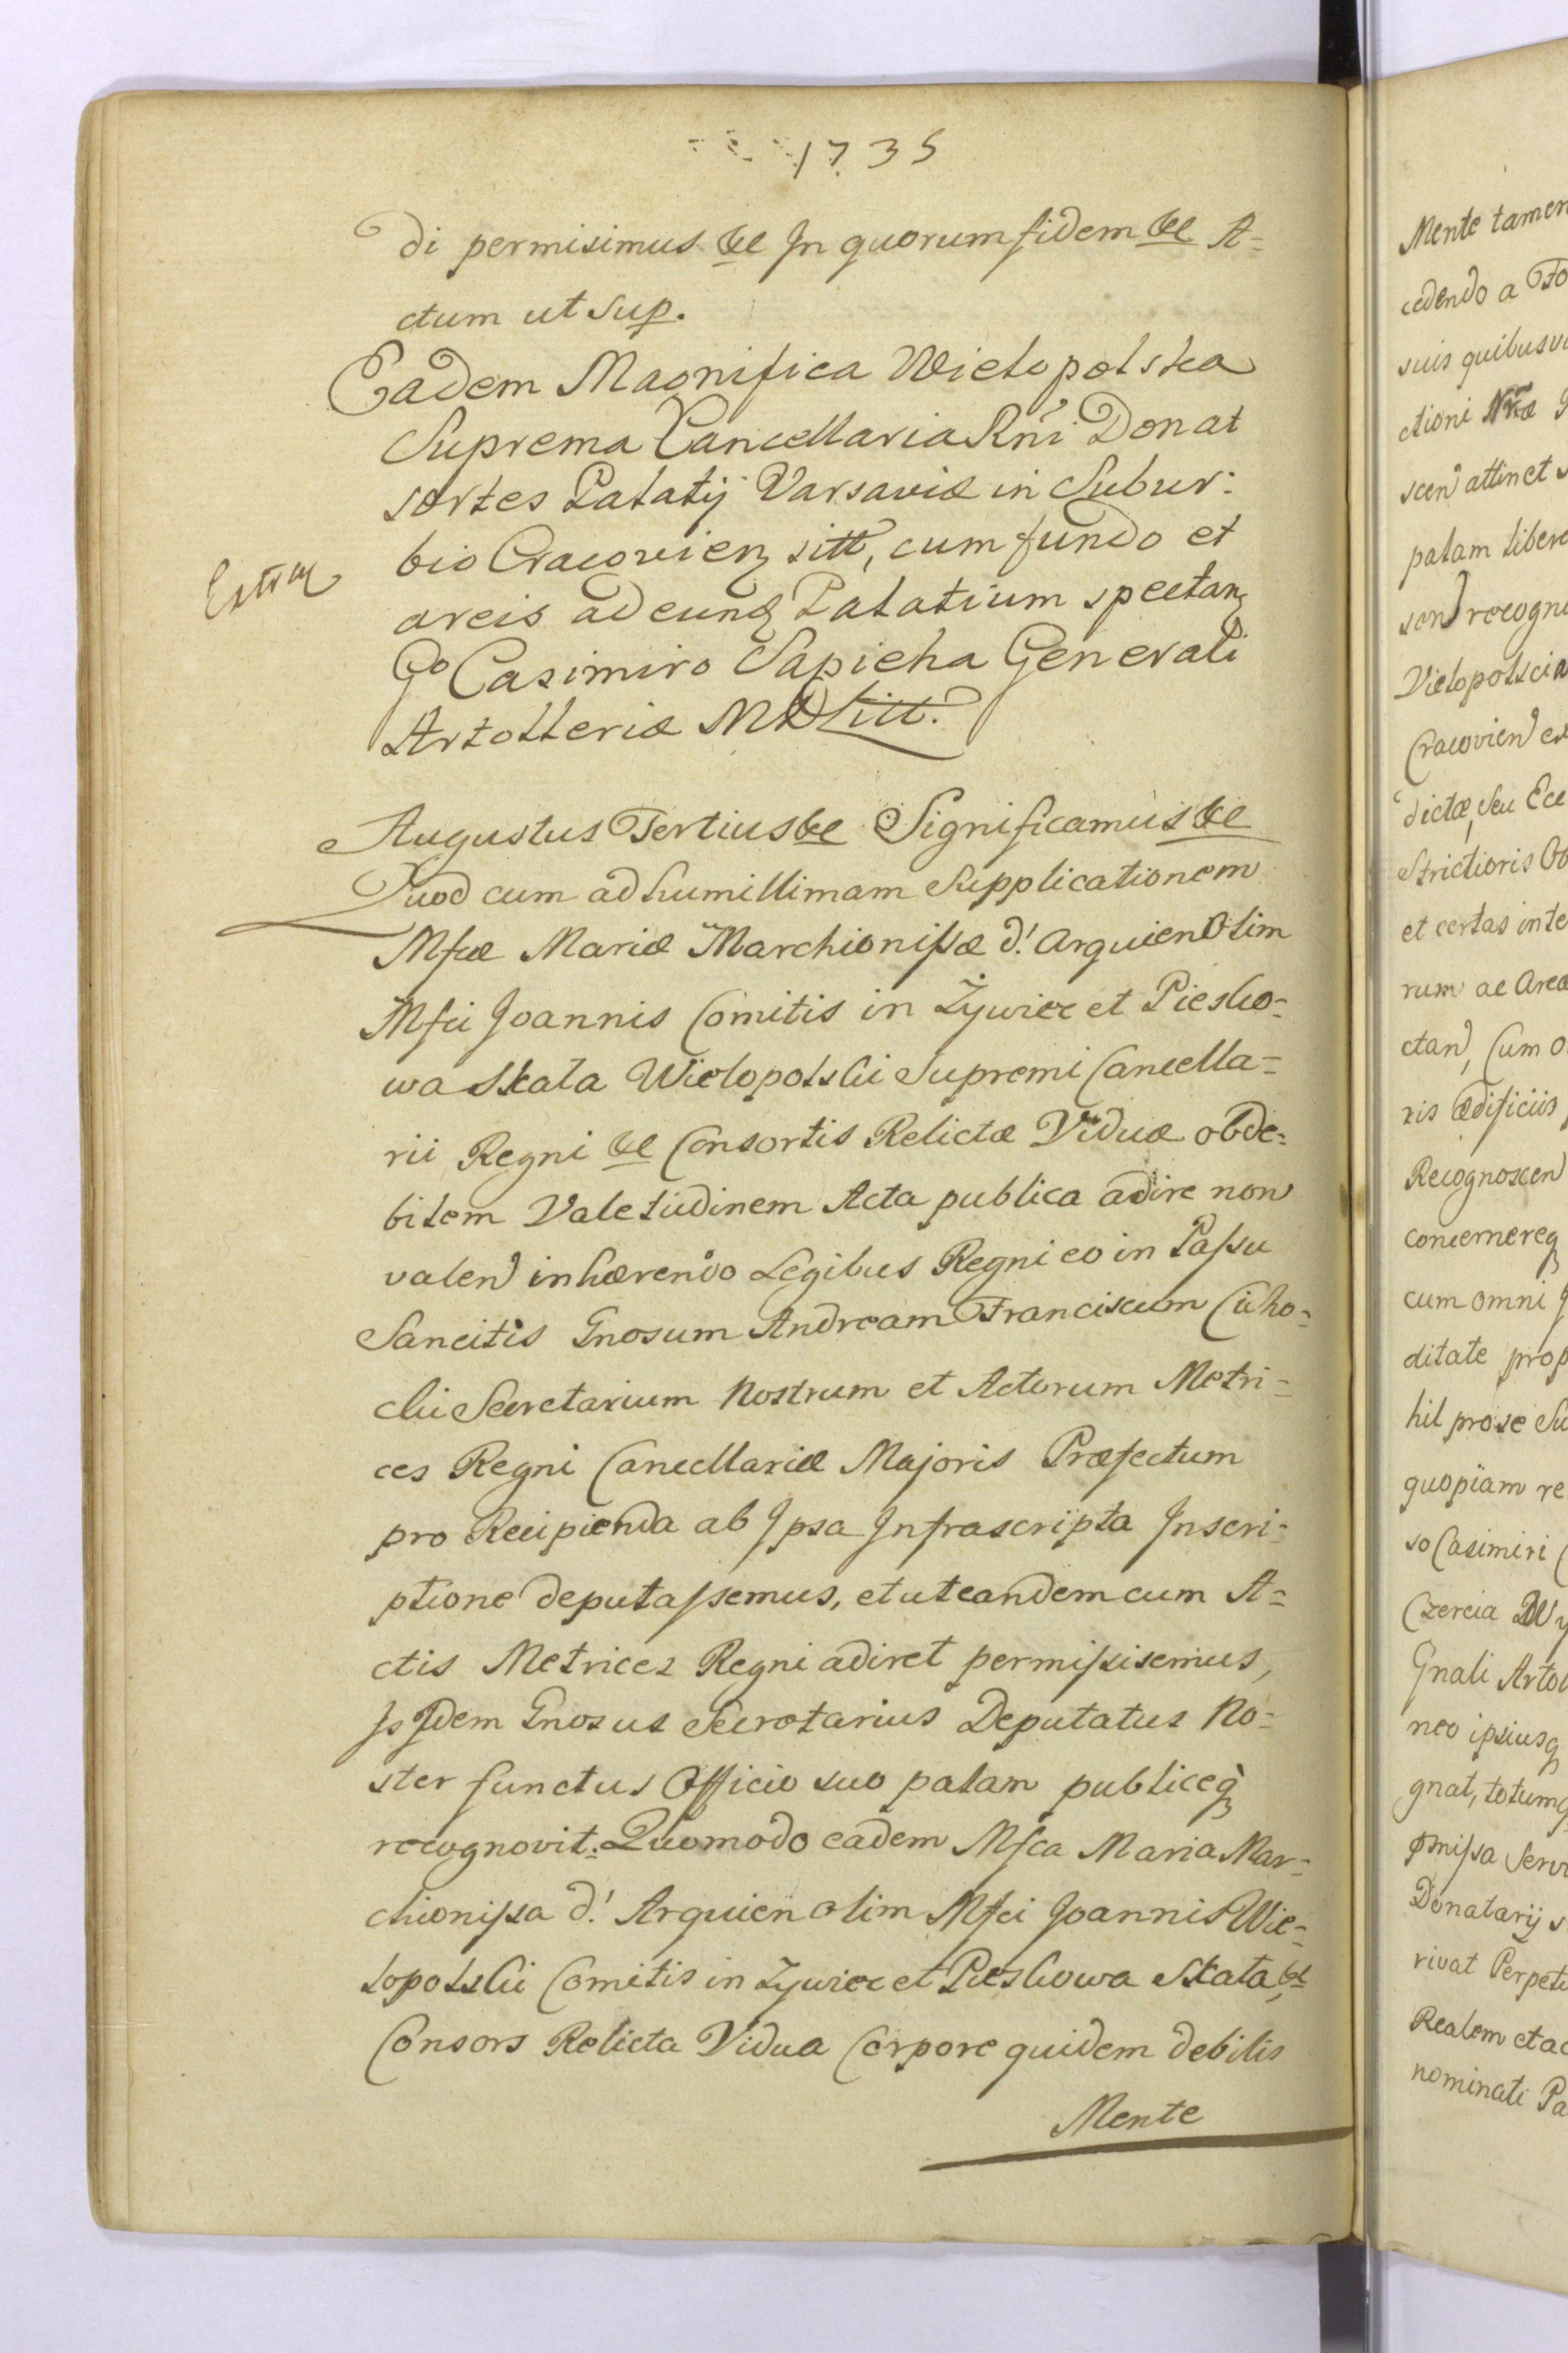 1735
di permisimus &c In quorum fidem &c A=
ctum ut sup.
Eadem Magnifica Wielopolska
Suprema Cancellaria Rñi Donat
sortes Palatij Varsaviæ in Subur:
bio Cracovien sitt, cum fundo et
areis ad eunq Palatium spectan
Go Casimiro Sapieha Generali
Artolleriæ MDLitt.
Extra
Augustus Tertius &c Significamus &c
Quod cum ad humillimam Supplicationem
Mfcæ Mariæ Marchionissæ d'. Arquien Olim
Mfci Joannis Comitis in Żywiec et Piesko=
wa Skała Wielopolski Supremi Cancella=
rii Regni &c Consortis Relictæ Viduæ ob de=
bilem Valetudinem Acta publica adire non
valen inhærendo Legibus Regni eo in Passu
Sancitis Gnosum Andream Franciscum Cicho=
cki Secretarium Nostrum et Actorum Metri=
ces Regni Cancellariæ Majoris Præfectum
pro Recipienda ab Ipsa Infrascripta Inscri=
ptione deputassemus, et ut eandem cum A=
ctis Metrices Regni adiret permississemus,
Is Idem Gnosus Secretarius Deputatus No=
ster functus Officio suo palam publiceq
recognovit. Quomodo eadem Mfca Maria Mar=
chionissa d'. Arquien olim Mfci Joannis Wie=
lopolski Comitis in Żywiec et Pieskowa Skała, &c
Consors Relicta Vidua Corpore quidem debilis
Mente
Mente tamen
cedendo a Fo
suis quibusv
ctioni Nræ
scen attinet
palam libere
sen recogno
Vielopolscia
Cracovien ex
dictæ, seu Ecc
Strictioris Ob
et certas inte
rum ac Area
ctan, Cum o
ris ædificiis,
Recognoscen
concernereq
cum omni J
ditate prop
hil pro se Su
quopiam re
so Casimiri
Czereia
Gnali Artol
neo ipsiusq
gnat, totumq
Donatarij s
rivat Perpetu
Realem et ac
nominati Pa